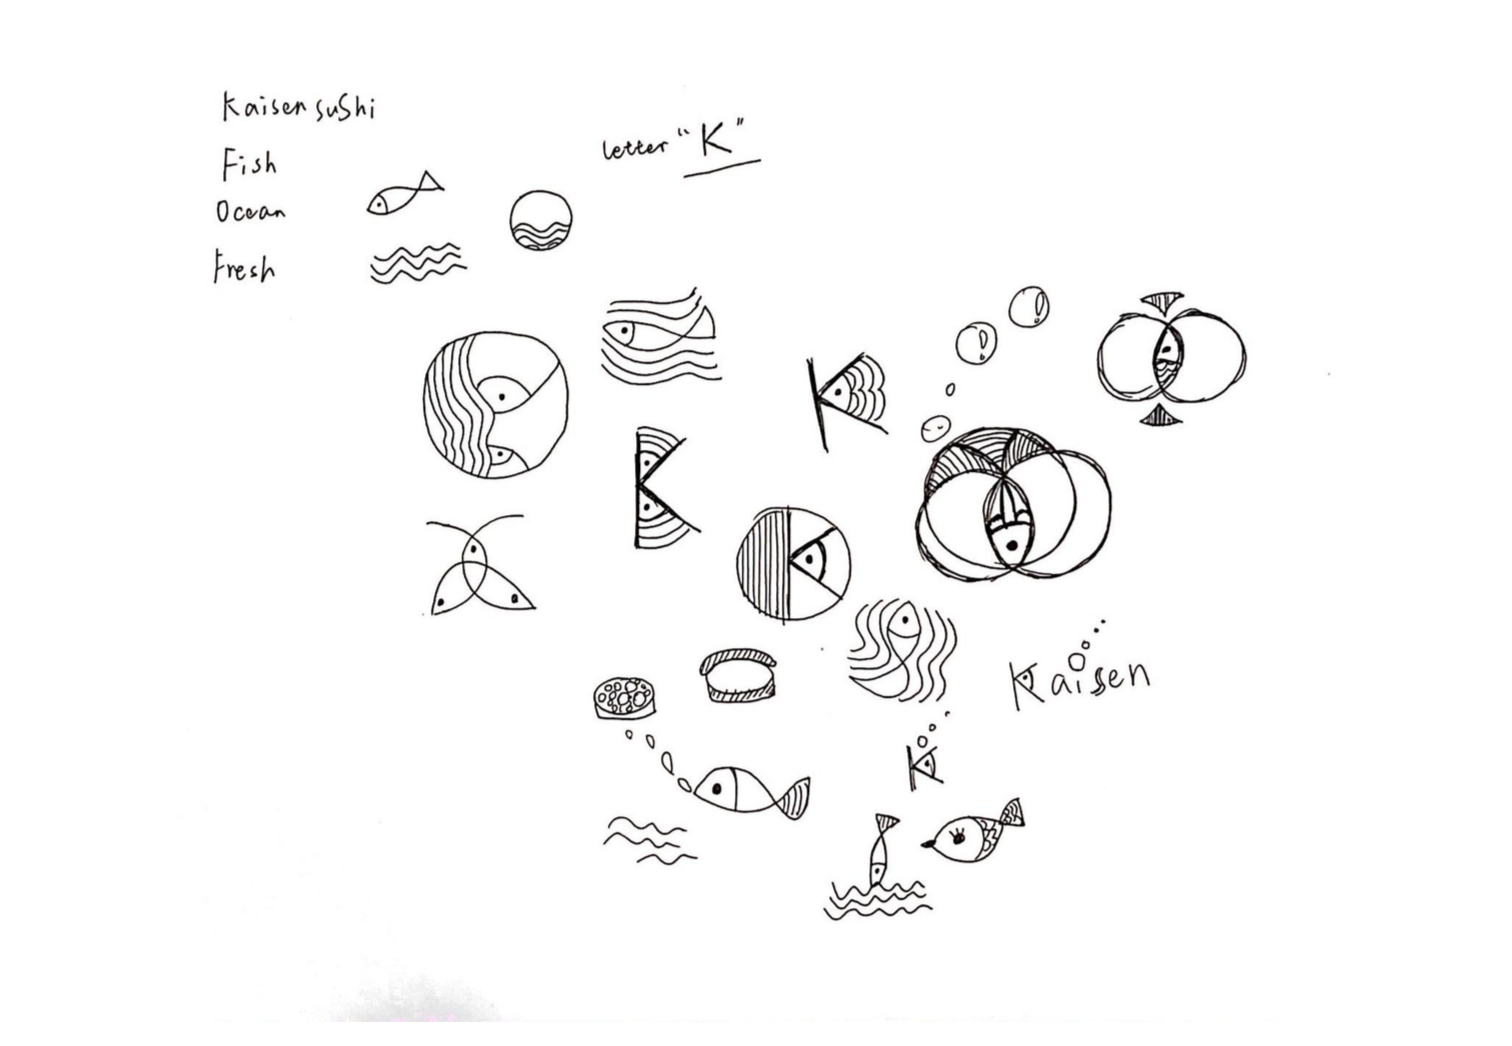 Kaisen suShi
Fish
Ocean
Fresh
letter "K"
K
K
K
Kaisen
K